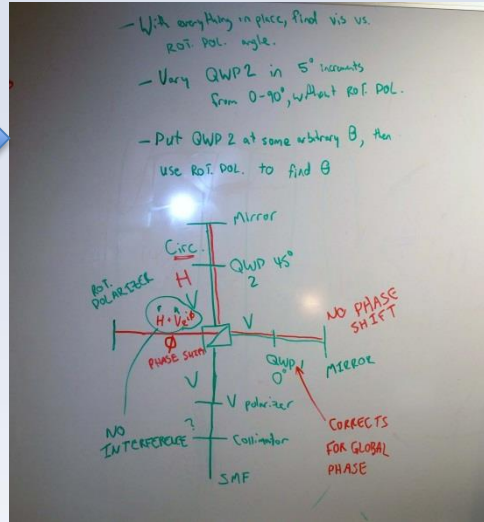 - With everything in place, find vis vs.
ROT. POL. angle.
- Vary QWP2 in 5° increments
from 0-90°, without ROT. POL.
- Put QWP 2 at some arbitrary θ, then
use ROT. POL. to find θ
Mirror
Circ.
QWP 45°
2
H
ROT.
POLARIZER
V
H + Ve^iϕ
V
NO PHASE
SHIFT
Ø
PHASE SHIFT
QWP 1
0°
MIRROR
V
V polarizer
NO
INTERFERENCE?
Collimator
CORRECTS
FOR GLOBAL
PHASE
SMF